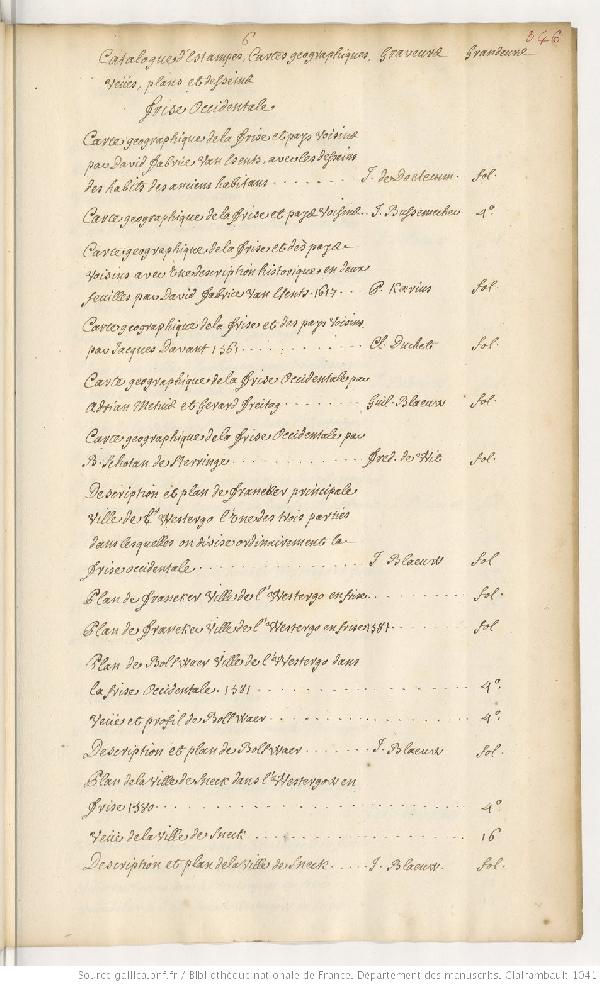 6
346
Catalogue d'Estampes, Cartes geographiques, Graveurs Grandeurs
veües, plans et desseins
Frise Occidentale.
Carte geographique de la Frise et pays voisins
par David Fabrice Van Esents, avec les desseins
des habits des anciens habitans . . . . . . . J. de Doetecum. fol.
Carte geographique de la Frise et pays voisins . . J. Bussemecher 4º.
Carte geographique de la Frise et des pays
voisins avec une description historique en deux
feuilles par David Fabrice Van Esents. 1617. . . P. Karius fol.
Carte geographique de la Frise et des pays voisins
par Jacques Davant 1561 . . . . . . . . . . . Cl. Duchett fol.
Carte geographique de la Frise Occidentale par
Adrian Metius et Gerard Freitag . . . . . . . Guil. Blaeux fol.
Carte geographique de la Frise Occidentale par
B. Schotan de Sterringe . . . . . . . . . . . Fred. de Wit fol.
Description et plan de Franeker principale
Ville de l'Westergo l'une des trois parties
dans lesquelles on divise ordinairement la
Frise occidentale . . . . . . . . . . . . . J. Blaeuw fol
Plan de Franeker Ville de l'Westergo en frise . . . . . . . . . fol.
Plan de Franeker Ville de l'Westergo en frise 1581 . . . . . . . fol
Plan de Bollwaer Ville de l'Westergo dans
la frise Occidentale. 1581 . . . . . . . . . . . . . . . . . . . 4º.
Veüe et profil de Bollwaer . . . . . . . . . . . . . . . . . . . 4º.
Description et plan de Bollwaer . . . . . . . J. Blaeuw fol.
Plan de la Ville de Sneck dans l'Westergow en
Frise 1580 . . . . . . . . . . . . . . . . . . . . . . . . . . . 4º
Veüe de la Ville de Sneck . . . . . . . . . . . . . . . . . . . 16
Description et plan de la Ville de Sneck. . . . . J. Blaeuw. fol.
Source gallica.bnf.fr / Bibliothèque nationale de France. Département des manuscrits. Clairambault 1041